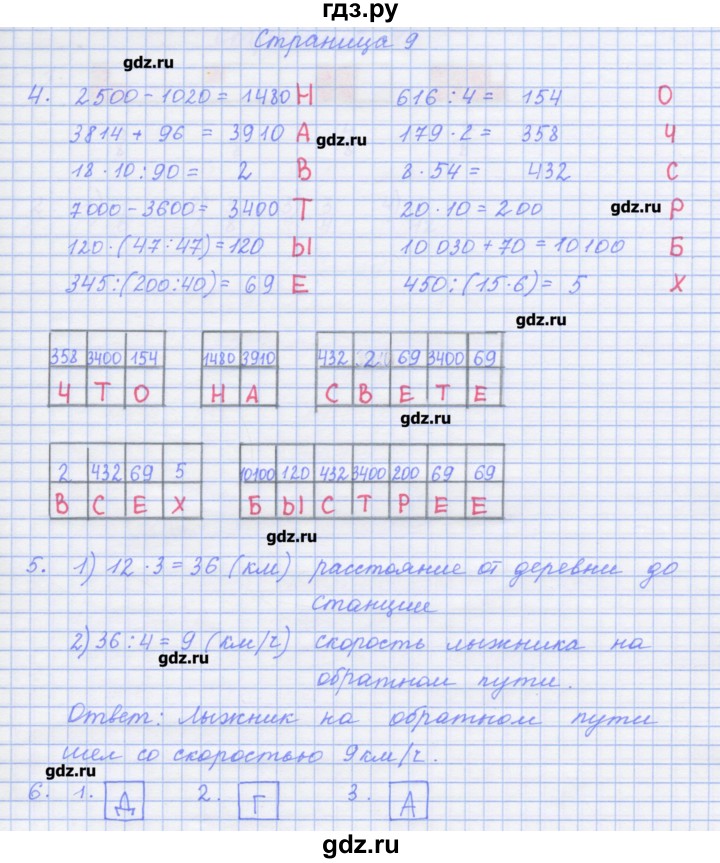 гдз.ру
Страница 9
gdz.ru
4. 2500 - 1020 = 1480 Н 616 : 4 = 154 О
3814 + 96 = 3910 А 179 · 2 = 358 Ч
gdz.ru
18 · 10 : 90 = 2 В 8 · 54 = 432 С
7000 - 3600 = 3400 Т 20 · 10 = 200 Р
gdz.ru
120 · (47 : 47) = 120 Ы 10 030 + 70 = 10100 Б
345 : (200 : 40) = 69 Е 450 : (15 · 6) = 5 Х
gdz.ru
358 3400 154 1480 3910 432 2 69 3400 69
Ч Т О Н А С В Е Т Е
gdz.ru
2 432 69 5 10100 120 432 3400 200 69 69
В С Е Х Б Ы С Т Р Е Е
gdz.ru
5. 1) 12 · 3 = 36 (км) расстояние от деревни до
станции
2) 36 : 4 = 9 (км/ч) скорость лыжника на
gdz.ru
обратном пути.
Ответ: лыжник на обратном пути
шел со скоростью 9 км/ч.
gdz.ru
6. 1. Д 2. Г 3. А
gdz.ru